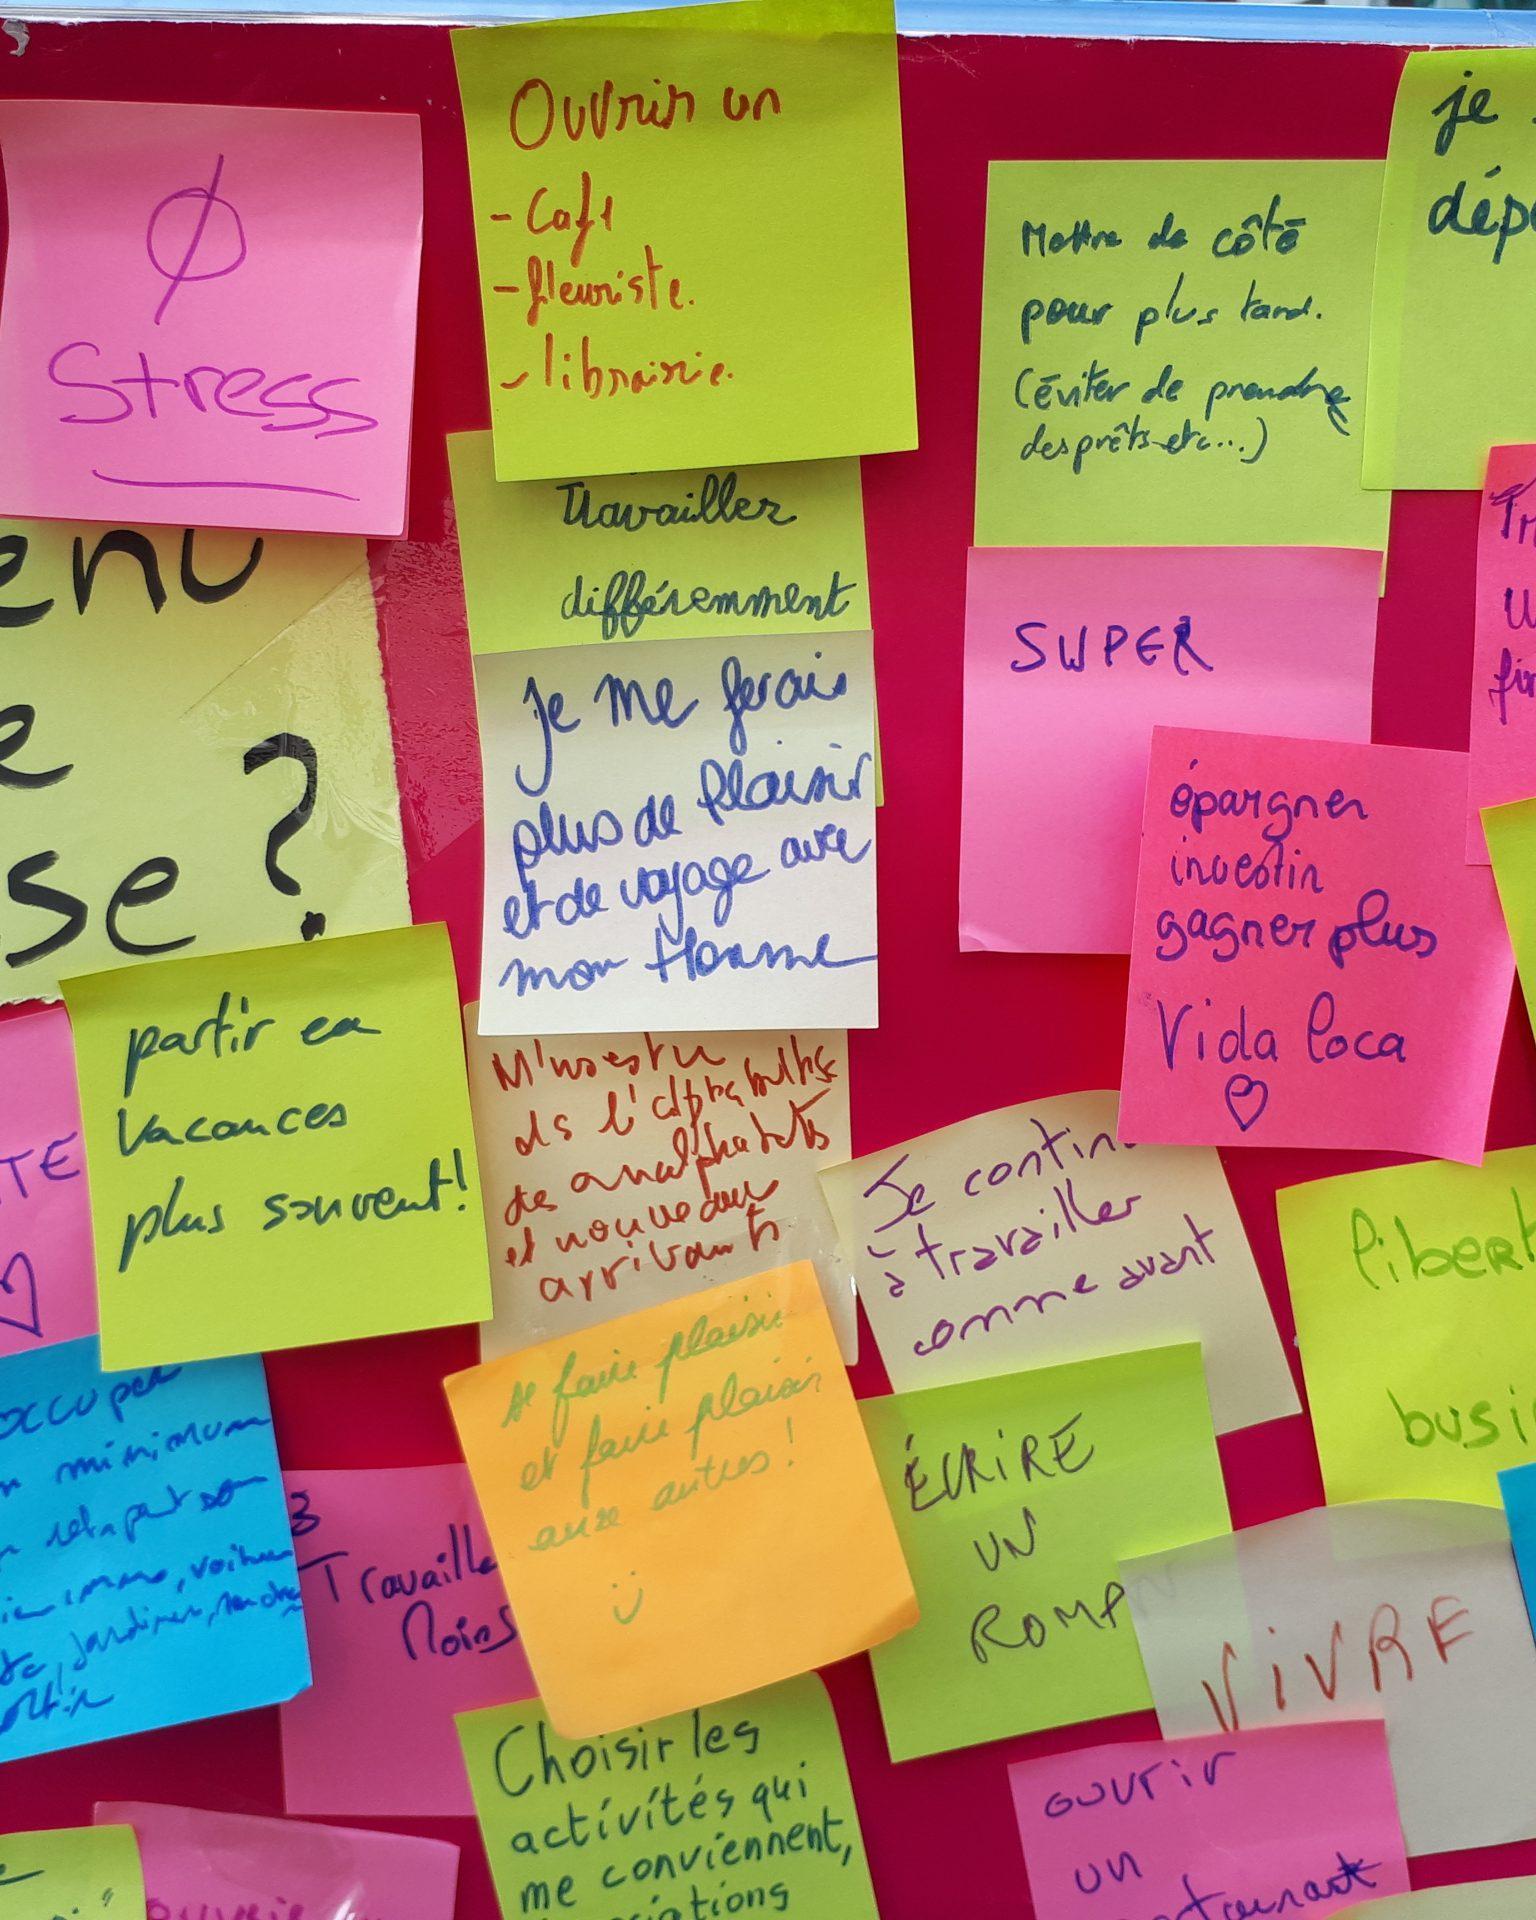 Ø
Stress
Ouvrir un
- Café
- fleuriste.
- librairie.
Mettre de côté
pour plus tard.
(éviter de prendre
des prêts etc...)
je
dép
Travailler
différemment
SUPER
enu
e
se ?
Je me ferais
plus de plaisir
et de voyage avec
mon Homme
épargner
investir
gagner plus
Vida loca
♡
partir en
vacances
plus souvent!
M'investir
ds l'alphabétise
de analphabets
et nouveau
arrivants
Je contin
à travailler
comme avant
libert
busi
TE
♡
occuper
minimum
immo, voiture
se faire plaisir
et faire plaisir
aux autres !
Travaille
Moins
ÉCRIRE
UN
ROMAN
VIVRE
Choisir les
activités qui
me conviennent,
ciations
ouvrir
un